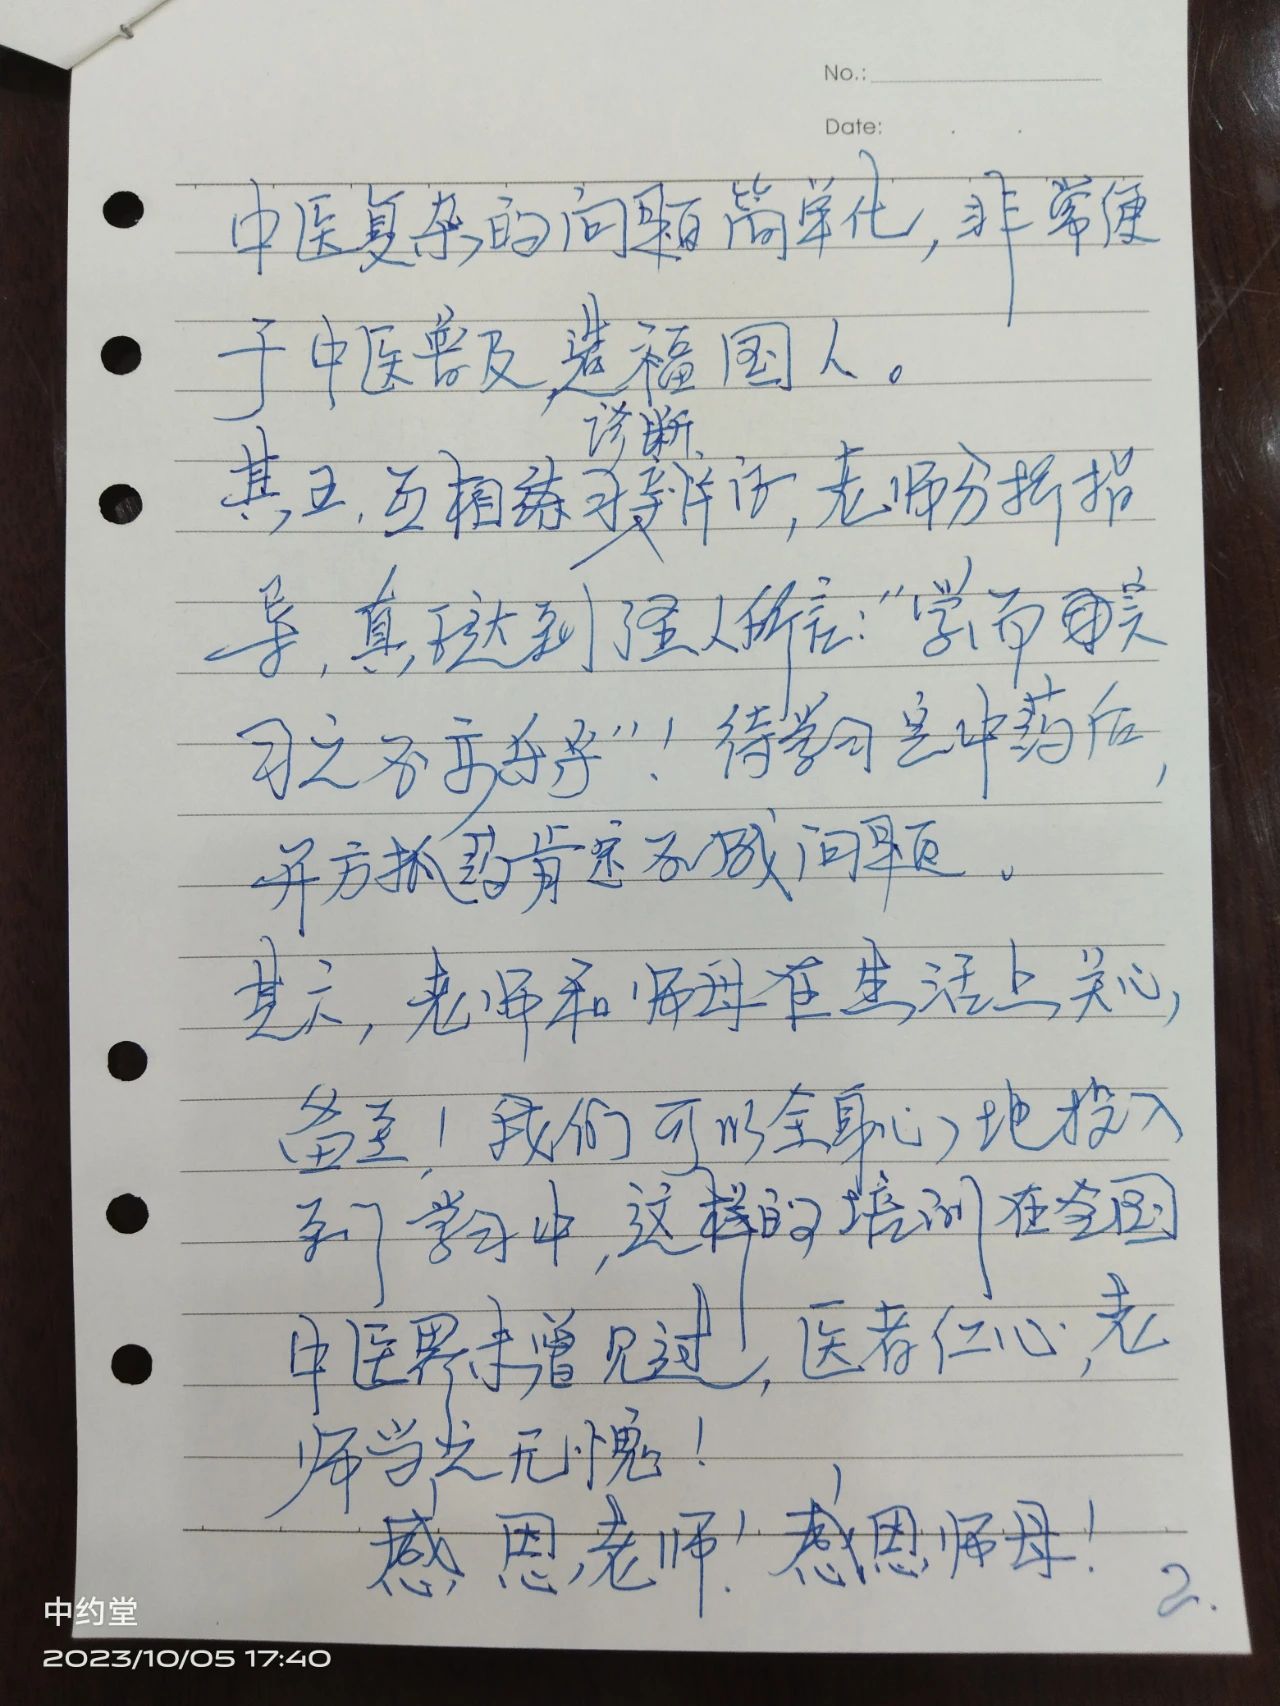 No.:
Date:
中医复杂的问题简单化,非常便
于中医普及,造福国人。
诊断
其五.互相练习辨证,老师分析指
导,真正达到了圣人所言:“学而时
习之不亦乐乎”!待学习完中药后,
开方抓药肯定不成问题。
其六,老师和师母在生活上关心,
备至!我们可以全身心地投入
到学习中,这样的培训在全国
中医界未曾见过,医者仁心,老
师当之无愧!
感恩老师!感恩师母!
2.
中约堂
2023/10/05 17:40